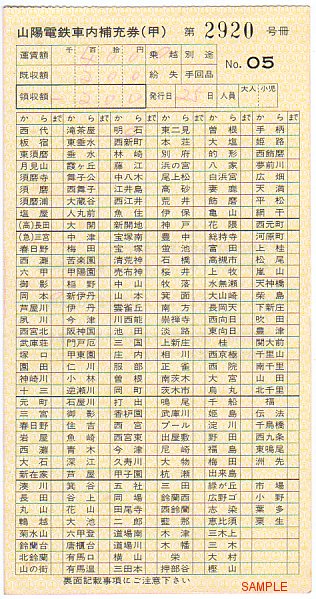 山陽電鉄車内補充券(甲) 第 2920 号冊
運賃額 千 百 拾 円 乗越 別途 No. 05
既収額 紛失 手回品
領収額 発行日 25日 人員 大人 小児
から まで から まで から まで から まで から まで から まで
西代 滝茶屋 明石 東二見 曽根 手柄
板宿 東垂水 西新町 本荘 大塩 姫路
東須磨 垂水 林崎 別府 的形 西飾磨
月見山 霞ヶ丘 藤江 浜の宮 八家 夢前川
須磨寺 舞子公 中八木 尾上松 白浜宮 広畑
須磨 西舞子 江井島 高砂 妻鹿 天満
須磨浦 大蔵谷 西江井 荒井 飾磨 平松
塩屋 人丸前 魚住 伊保 亀山 網干
(高)長田 大開 新開地 神戸 花隈 西元町
(急)三宮 中津 宝塚南 豊中 総持寺 河原町
春日野 梅田 宝塚 蛍池 富田 上桂
西灘 苦楽園 清荒神 石橋 高槻市 松尾
六甲 甲陽園 売布神 桜井 上牧 嵐山
御影 稲野 中山 牧落 水無瀬 天神橋
岡本 新伊丹 山本 箕面 大山崎 柴島
芦屋川 伊丹 雲雀丘 南方 長岡天 下新庄
夙川 今津 川西能 崇禅寺 西向日 吹田
西宮北 阪神国 池田 淡路 東向日 豊津
武庫荘 門戸厄 三国 上新庄 桂 関大前
塚口 甲東園 庄内 相川 西京極 千里山
園田 仁川 服部 正雀 西院 南千里
神崎川 小林 曽根 南茨木 大宮 山田
十三 逆瀬川 岡町 茨木市 烏丸 北千里
元町 石屋川 打出 鳴尾 千船 福
三宮 御影 香枦園 武庫川 姫島 伝法
春日野 住吉 西宮 プール 淀川 千鳥橋
岩屋 魚崎 西宮東 出屋敷 野田 西九条
西灘 青木 今津 尼崎 福島 東鳴尾
大石 深江 久寿川 大物 梅田 洲先
新在家 芦屋 甲子園 杭瀬 出来島
湊川 箕谷 五社 三田 緑が丘 市場
長田 谷上 岡場 鈴蘭西 広野ゴ 小野
丸山 花山 田尾寺 西鈴蘭 志染 葉多
鵯越 大池 二郎 藍那 恵比須 粟生
菊水山 六甲登 道場南 木津 三木上
鈴蘭台 唐櫃台 道場川 木幡 三木
北鈴蘭 有馬口 横山 栄 大村
山の街 有馬温 三田本 押部谷 樫山
裏面記載事項にご注意下さい
SAMPLE